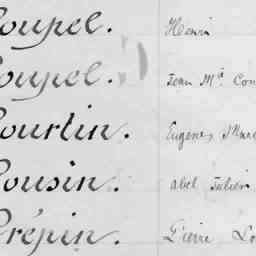 Coupel. Henri
Coupel. Jean Mie Con
Courtin. Eugène, Marc
Cousin. Abel Julien
Crépin. Pierre Lo